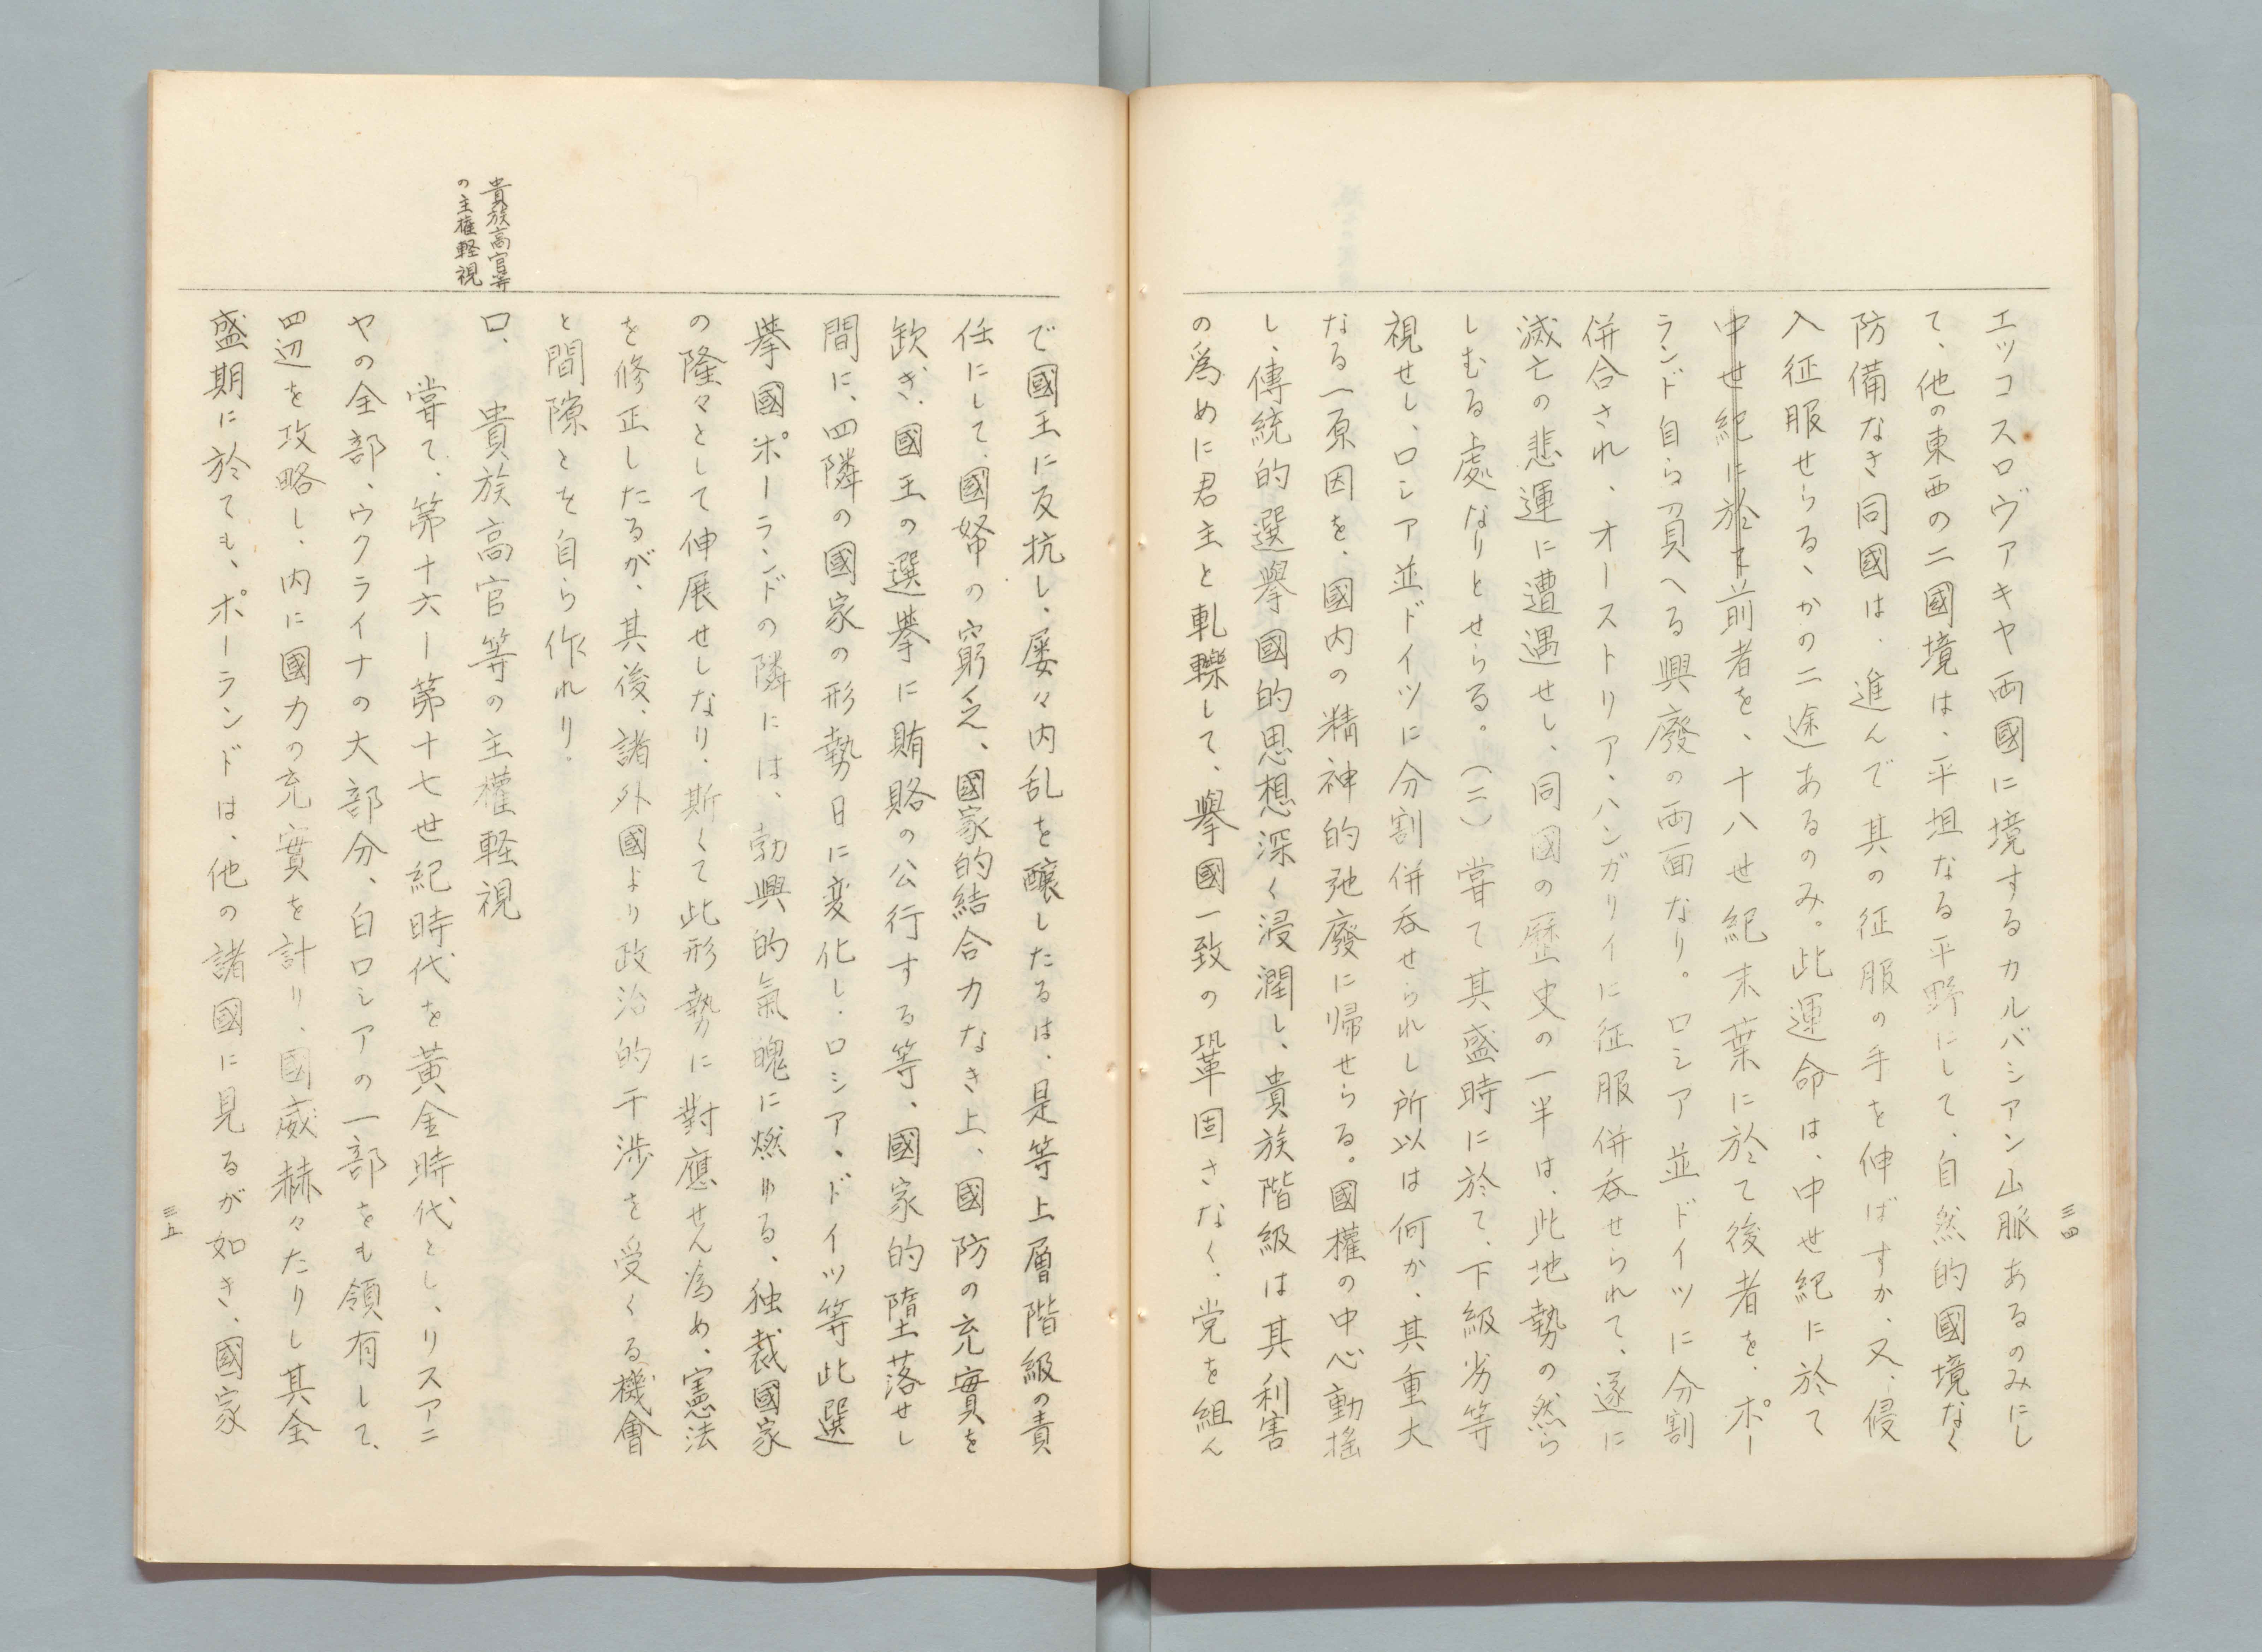 三四
エッコスロヴァキヤ両國に境するカルバシアン山脈あるのみにし
て、他の東西の二國境は、平坦なる平野にして、自然的國境なく
防備なき同國は、進んで其の征服の手を伸ばすか、又、侵
入征服せらるゝかの二途あるのみ。此運命は、中世紀に於て
中世紀に於て前者を、十八世紀末葉に於て後者を、ポー
ランド自ら負へる興廢の両面なり。ロシア並ドイツに分割
併合され、オーストリア、ハンガリイに征服併呑せられて、遂に
滅亡の悲運に遭遇せし、同國の歴史の一半は、此地勢の然ら
しむる處なりとせらる。(二)嘗て其盛時に於て、下級劣等
視せし、ロシア並ドイツに分割併呑せられし所以は何か、其重大
なる一原因を、國内の精神的弛廢に帰せらる。國權の中心動揺
し、傳統的選擧國的思想深く浸潤し、貴族階級は其利害
の爲めに君主と軋轢して、擧國一致の鞏固さなく、党を組ん
で國王に反抗し、屡々内乱を醸したるは、是等上層階級の責
任にして、國帑の窮乏、國家的結合力なき上、國防の充實を
欽ぎ、國王の選挙に賄賂の公行する等、國家的墮落せし
間に、四隣の國家の形勢日に変化し、ロシア、ドイツ等此選
挙國ポーランドの隣には、勃興的氣魄に燃ゆる、独裁國家
の隆々として伸展せしなり、斯くて此形勢に對應せん為め、憲法
を修正したるが、其後、諸外國より政治的干渉を受くる機會
と間隙とを自ら作れり。
貴族高官等
の主権軽視
ロ、 貴族高官等の主權軽視
嘗て、第十六ー第十七世紀時代を黄金時代とし、リスアニ
ヤの全部、ウクライナの大部分、白ロシアの一部をも領有して、
四辺を攻略し、内に國力の充實を計り、國威赫々たりし其全
盛期に於ても、ポーランドは、他の諸國に見るが如き、國家
三五